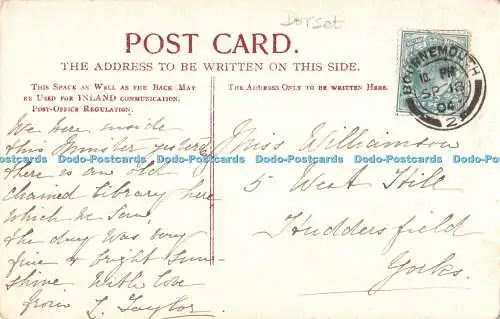 Dorset
POST CARD.
THE ADDRESS TO BE WRITTEN ON THIS SIDE.
THIS SPACE AS WELL AS THE BACK MAY
BE USED FOR INLAND COMMUNICATION.
POST-OFFICE REGULATION.
THE ADDRESS ONLY TO BE WRITTEN HERE.
BOURNEMOUTH
10. PM
SP 18
04
2
We were inside
this Minster yesterday
there is an old
Chained Library here
which we saw,
the day was very
fine & bright sun-
shine With love
from L. Taylor.
Miss Williamson
5 West Hill
Huddersfield
Yorks.
Data-Postcards Data-Postcards Data-Postcards Data-Postcards Data-Postcards Data-Postcards